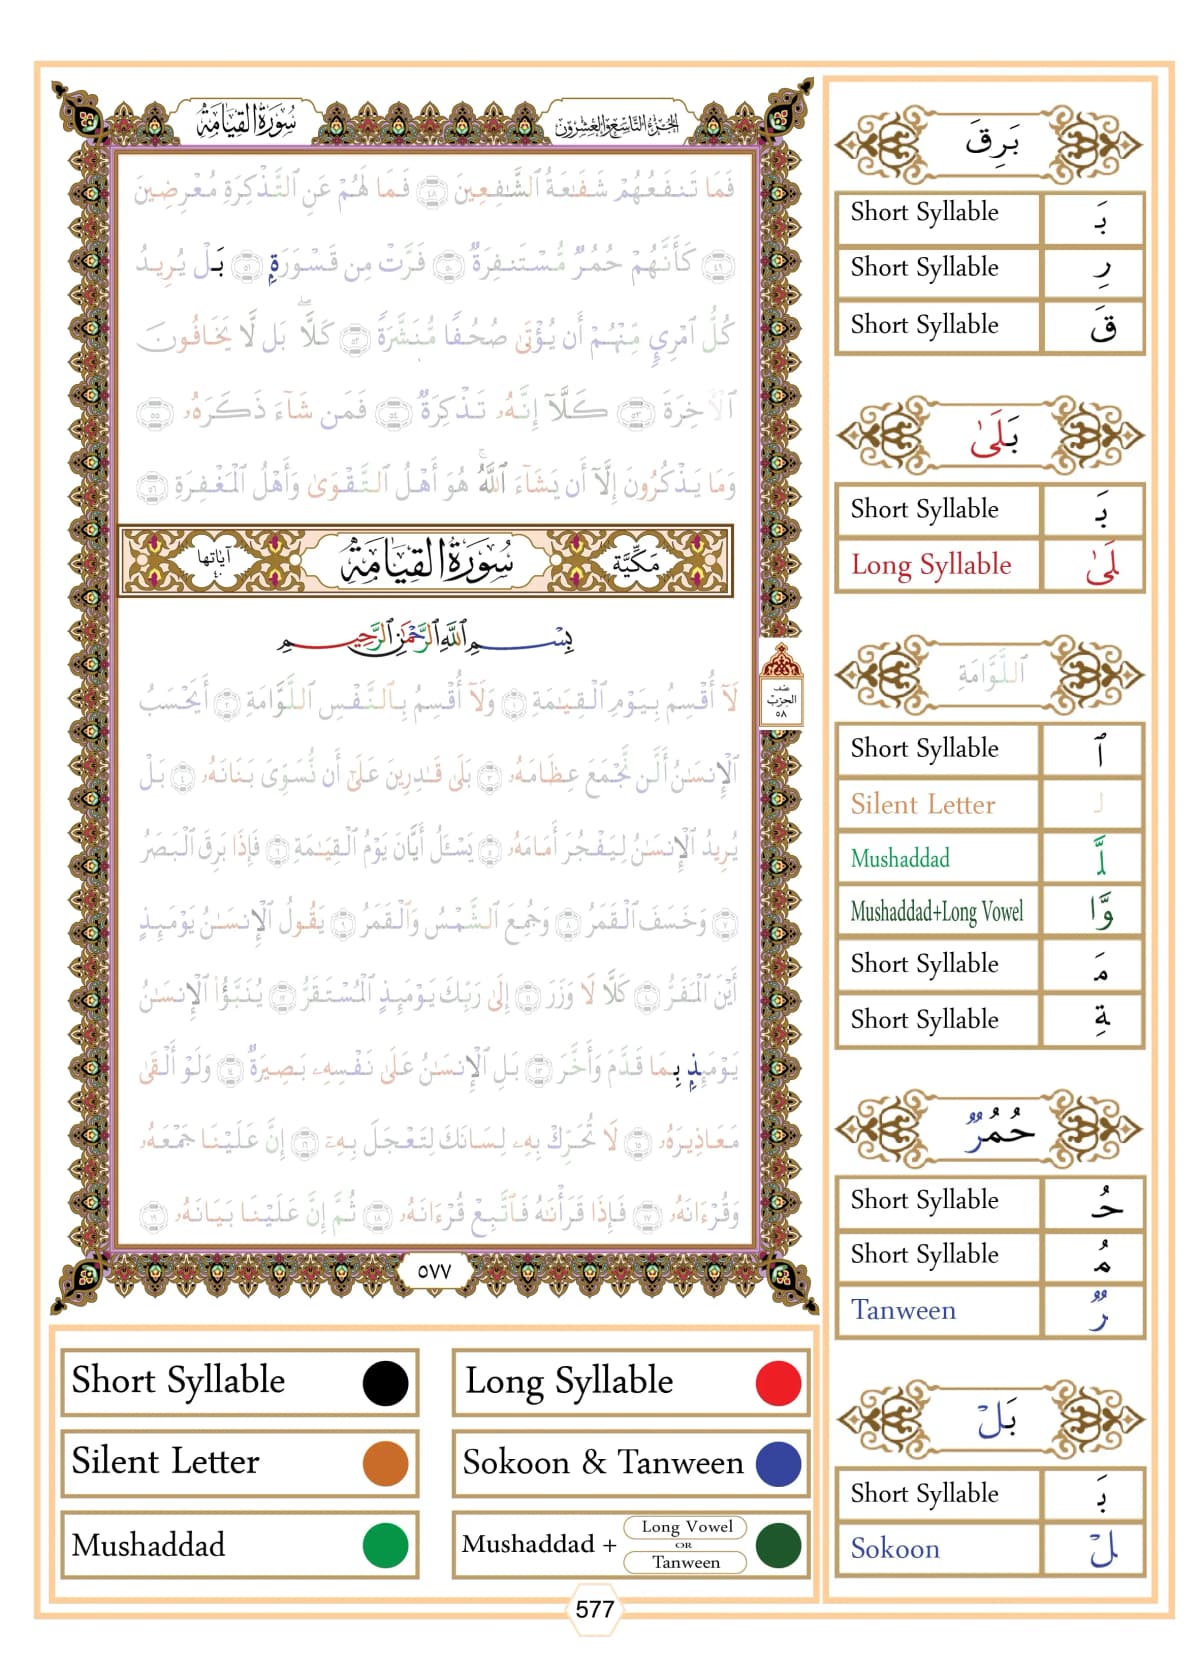 سُورَةُ القِيَامَةِ
الجُزْءُ التَّاسِعُ وَالعِشْرُونَ
فَمَا تَنفَعُهُمْ شَفَـٰعَةُ ٱلشَّـٰفِعِينَ ٤٨ فَمَا لَهُمْ عَنِ ٱلتَّذْكِرَةِ مُعْرِضِينَ
٤٩ كَأَنَّهُمْ حُمُرٌ مُّسْتَنفِرَةٌ ٥٠ فَرَّتْ مِن قَسْوَرَةٍۭ ٥١ بَلْ يُرِيدُ
كُلُّ ٱمْرِئٍ مِّنْهُمْ أَن يُؤْتَىٰ صُحُفًا مُّنَشَّرَةً ٥٢ كَلَّا ۖ بَل لَّا يَخَافُونَ
ٱلْـَٔاخِرَةَ ٥٣ كَلَّآ إِنَّهُۥ تَذْكِرَةٌ ٥٤ فَمَن شَآءَ ذَكَرَهُۥ ٥٥
وَمَا يَذْكُرُونَ إِلَّآ أَن يَشَآءَ ٱللَّهُ ۚ هُوَ أَهْلُ ٱلتَّقْوَىٰ وَأَهْلُ ٱلْمَغْفِرَةِ ٥٦
مَكِّيَّة سُورَةُ القِيَامَةِ آيَاتُها ٤٠
بِسْمِ ٱللَّهِ ٱلرَّحْمَـٰنِ ٱلرَّحِيمِ
لَآ أُقْسِمُ بِيَوْمِ ٱلْقِيَـٰمَةِ ١ وَلَآ أُقْسِمُ بِٱلنَّفْسِ ٱللَّوَّامَةِ ٢ أَيَحْسَبُ
ٱلْإِنسَـٰنُ أَلَّن نَّجْمَعَ عِظَامَهُۥ ٣ بَلَىٰ قَـٰدِرِينَ عَلَىٰٓ أَن نُّسَوِّىَ بَنَانَهُۥ ٤ بَلْ
يُرِيدُ ٱلْإِنسَـٰنُ لِيَفْجُرَ أَمَامَهُۥ ٥ يَسْـَٔلُ أَيَّانَ يَوْمُ ٱلْقِيَـٰمَةِ ٦ فَإِذَا بَرِقَ ٱلْبَصَرُ
٧ وَخَسَفَ ٱلْقَمَرُ ٨ وَجُمِعَ ٱلشَّمْسُ وَٱلْقَمَرُ ٩ يَقُولُ ٱلْإِنسَـٰنُ يَوْمَئِذٍ
أَيْنَ ٱلْمَفَرُّ ١٠ كَلَّا لَا وَزَرَ ١١ إِلَىٰ رَبِّكَ يَوْمَئِذٍ ٱلْمُسْتَقَرُّ ١٢ يُنَبَّؤُا۟ ٱلْإِنسَـٰنُ
يَوْمَئِذٍۭ بِمَا قَدَّمَ وَأَخَّرَ ١٣ بَلِ ٱلْإِنسَـٰنُ عَلَىٰ نَفْسِهِۦ بَصِيرَةٌ ١٤ وَلَوْ أَلْقَىٰ
مَعَاذِيرَهُۥ ١٥ لَا تُحَرِّكْ بِهِۦ لِسَانَكَ لِتَعْجَلَ بِهِۦٓ ١٦ إِنَّ عَلَيْنَا جَمْعَهُۥ
وَقُرْءَانَهُۥ ١٧ فَإِذَا قَرَأْنَـٰهُ فَٱتَّبِعْ قُرْءَانَهُۥ ١٨ ثُمَّ إِنَّ عَلَيْنَا بَيَانَهُۥ ١٩
نصف
الحزب
٥٨
٥٧٧
بَرِقَ
Short Syllable بَـ
Short Syllable رِ
Short Syllable قَ
بَلَىٰ
Short Syllable بَـ
Long Syllable لَىٰ
ٱللَّوَّامَةِ
Short Syllable ٱ
Silent Letter لـ
Mushaddad لَّـ
Mushaddad+Long Vowel وَّا
Short Syllable مَـ
Short Syllable ـةِ
حُمُرٌ
Short Syllable حُـ
Short Syllable مُـ
Tanween رٌ
بَلْ
Short Syllable بَـ
Sokoon لْ
Short Syllable
Long Syllable
Silent Letter
Sokoon & Tanween
Mushaddad
Mushaddad + Long Vowel OR Tanween
577